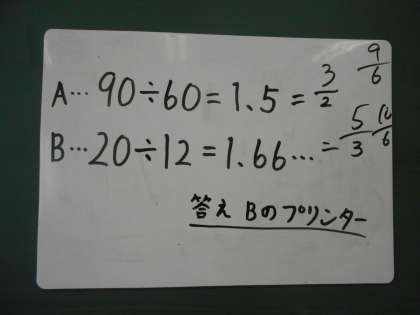 A…90÷60=1.5=3/2 9/6
B…20÷12=1.66…=5/3 10/6
答え Bのプリンター